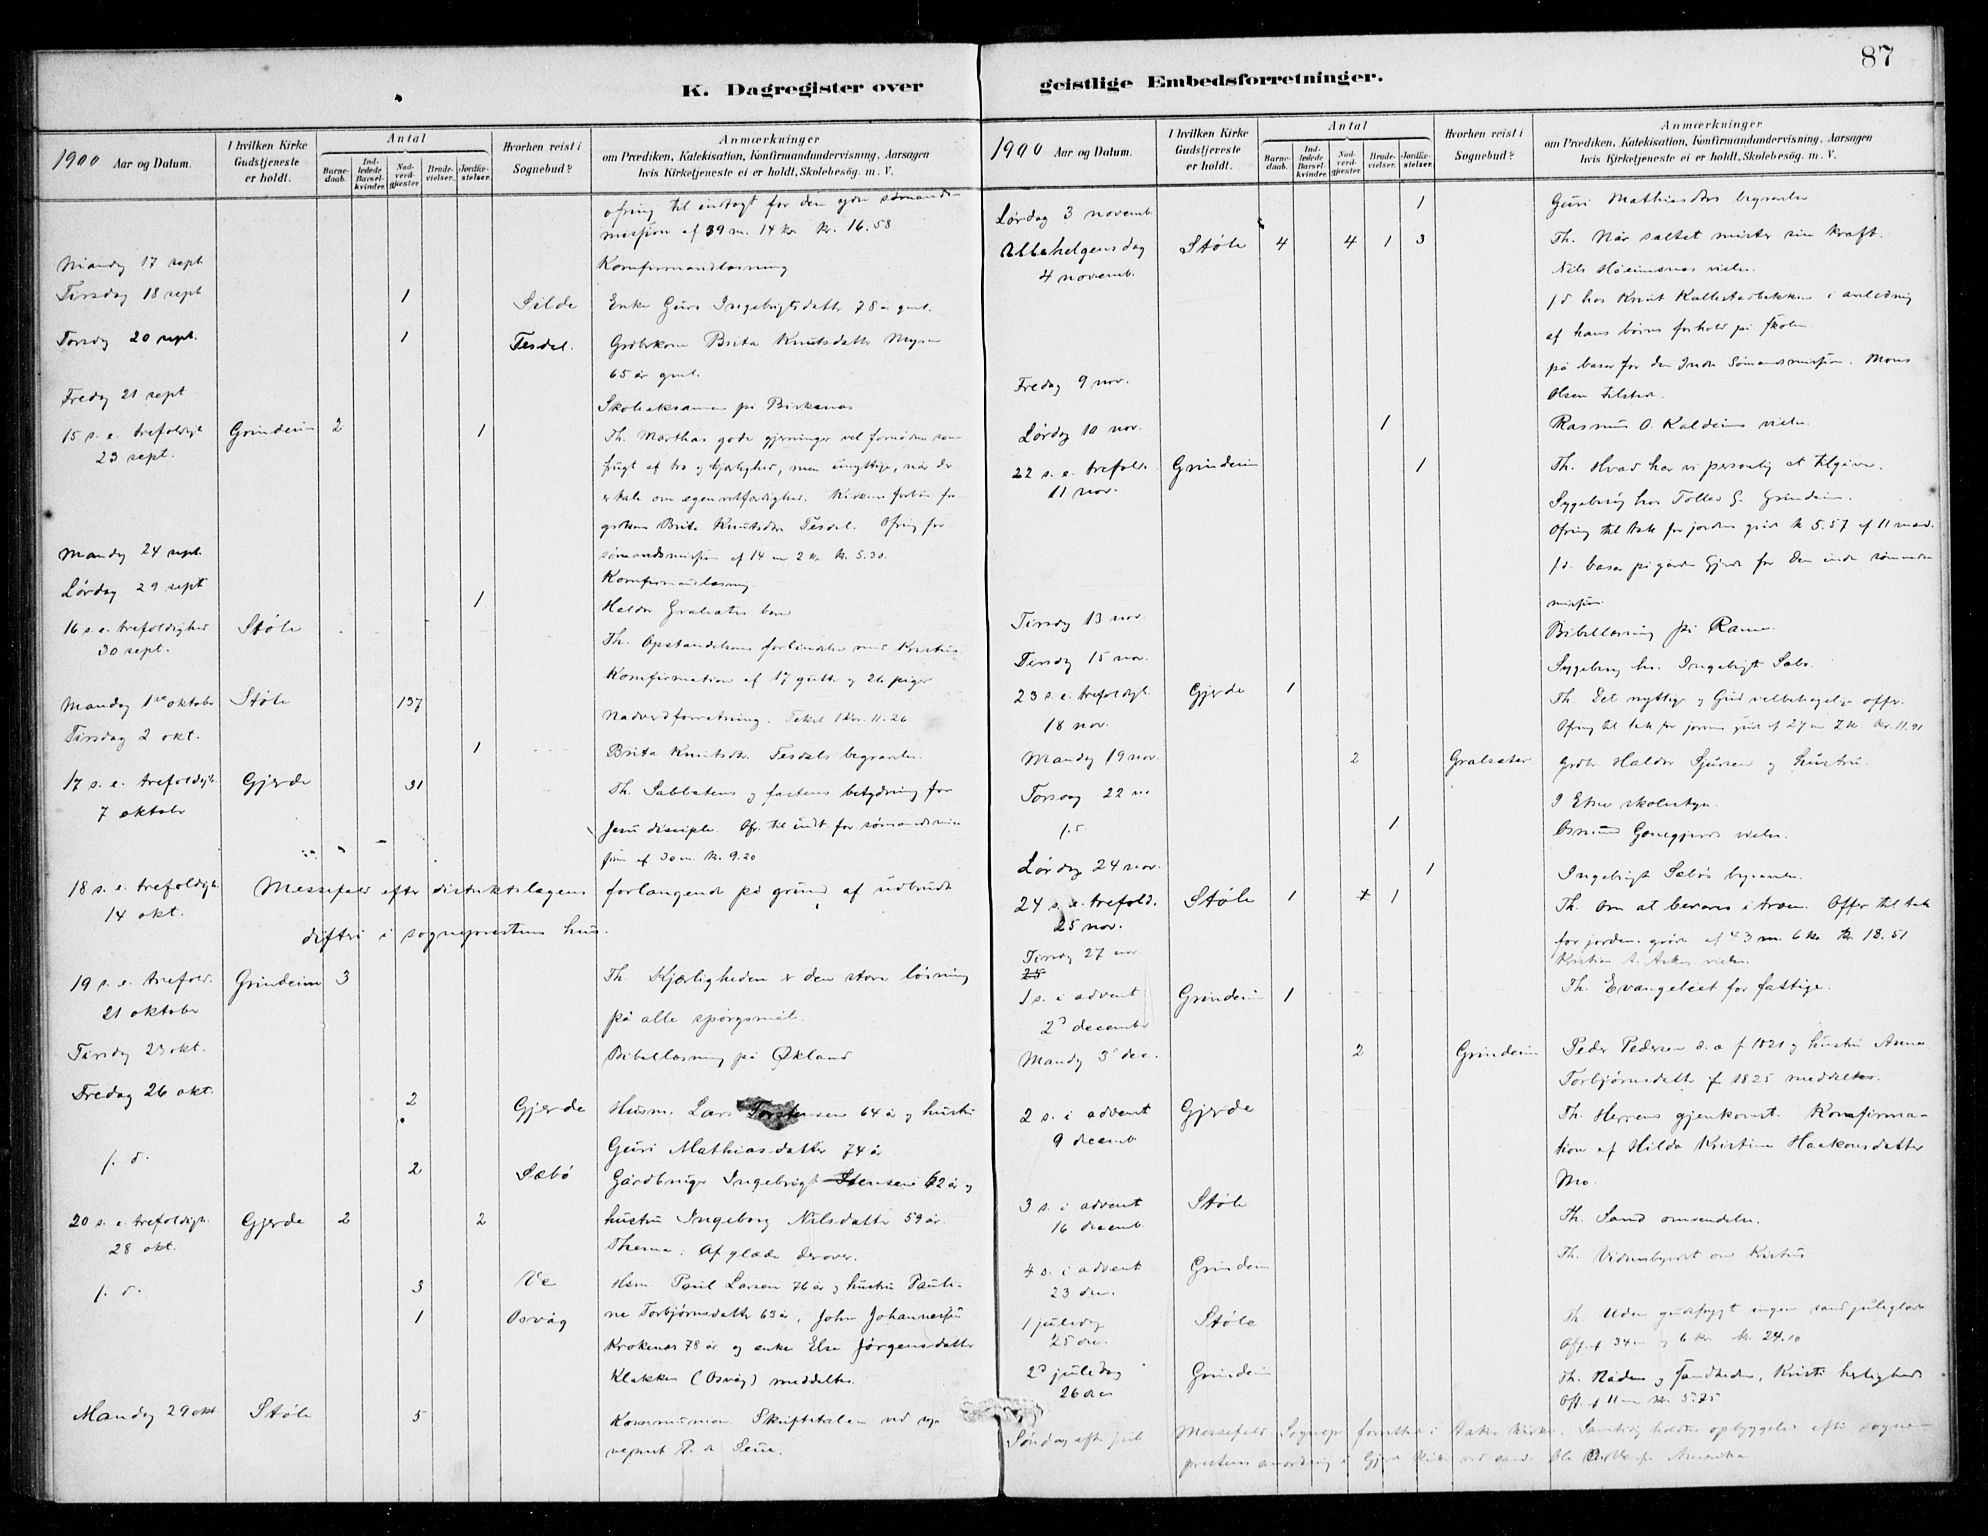 87
K. Dagregister over geistlige Embedsforretninger.
1900 Aar og Datum.
I hvilken Kirke Gudstjeneste er holdt.
Antal
Barnedaab.
Indledede Barselkvinder.
Nadverdgjester
Brudevielser.
Jordfæstelser.
Hvorhen reist i Sognebud?
Anmærkninger
om Prædiken, Katekisation, Konfirmandundervisning, Aarsagen
hvis Kirketjeneste ei er holdt, Skolebesøg. m. V.
ofring til indtægt for den sømands-
mission af 39 m. 14 kv. kr. 16.58
Mandag 17 sept. Konfirmandlæsning
Tirsdag 18 sept 1 Silde Enke Guro Ingebrigtsdatter 78 år gml.
Torsdag 20 sept. 1 Tesdal. Brita Knutsdatter
65 år gml.
Fredag 21 sept Skoleeksamen på Birkenes
15 s. e. trefoldigh. Grindeim 2 1 Th. Marthas gode gjerninger vel fornødne som
23 sept. frugt af tro og kjærlighed, men unyttige, når der
er tale om egenretfærdighed.
Brita Knutsdtr Tesdal. Ofring for
Mandag 24 sept. sømandsmission af 14 m 2 kv. kr. 5.30.
Lørdag 29 sept Konfirmandlæsning
1 Haldor Gralsæter barn
16 s. e. trefoldighed Støle Th. Opstandelsens forbindelse med Kristus.
30 sept. Konfirmation af 17 gutter og 26 piger
Mandag 1ste oktober Støle 137 Nadverdforretning. kr. 11.26
Tirsdag 2 okt. 1 Brita Knutsdtr. Tesdals begravelse.
17 s. e. trefoldigh. Gjerde 31 Th. Sabbatens og fastens betydning for
7 oktober Jesu disciple. Of. til indt. for sømandsmis-
sion af 30 m. kr. 9.20
18 s. e. trefoldigh. Messefald efter distriktslægens forlangende på grund af udbrudt
14 okt. difteri i sogneprestens hus.
19 s. e. trefold. Grindeim 3 Th. Kjærligheden er den store løsning
21 oktober på alle spørgsmål.
Tirsdag 23 okt. Bibellæsning på Økland
Fredag 26 okt. 2 Gjerde Husm. Lars Torstensen 64 år og hustru
Guri Mathiasdatter 74 år
s. d. 2 Sæbø Gårdbruger Ingebrigt Stensen 62 år og
20 s. e. trefoldigh. Gjerde 2 2 hustru Ingeborg Nilsdatter 59 år.
28 okt. Thema: Af glæde derover.
s. d. 3 Ve Hsm. Paul Larsen 76 år og hustru Pauli-
1 Osvåg ne Torbjørnsdatter 63 år, John Johannessen
Krokenes 78 år og enke Else Jørgensdatter
Klakken (Osvåg) meddeltes.
Mandag 29 okt. Støle 5 Kommunion. Skriftetalen ved
1900 Aar og Datum.
I hvilken Kirke Gudstjeneste er holdt.
Antal
Barnedaab.
Indledede Barselkvinder.
Nadverdgjester
Brudevielser.
Jordfæstelser.
Hvorhen reist i Sognebud?
Anmærkninger
om Prædiken, Katekisation, Konfirmandundervisning, Aarsagen
hvis Kirketjeneste ei er holdt, Skolebesøg. m. V.
Lørdag 3 novemb. 1 Guri Mathiasdtrs begravelse
Allehelgensdag Støle 4 4 1 3 Th. Når saltet mister sin kraft.
4 novemb. Nils vielse.
s. d. hos Knut i anledning
af hans børns forhold på skolen
Fredag 9 nov. på basar for den Indre Sømandsmission. Mons
Olsen
Lørdag 10 nov. 1 Rasmus O. Kaldeims vielse.
22 s. e. trefold. Grindeim 1 Th. Hvad har vi personlig at tilgive.
11 nov. Sygebesøg hos Tollev G. Grindeim.
Ofring til tak for jordens grøde kr 5.57 af 11 mand.
s. d. basar på gården Gjerde for den indre sømands-
mission
Tirsdag 13 nov. Bibellæsning på
Torsdag 15 nov. Sygebesøg hos Ingebrigt Sæbø.
23 s. e. trefoldigh. Gjerde 1 Th. Et nyttig og Gud velbehagelig offer.
18 nov. Ofring til tak for jordens grøde af 27 m 2 kv kr. 11.91
Mandag 19 nov. 2 Gralsæter Grdbr. Haldor Sjursen og hustru.
Torsdag 22 nov I Etne skolestyre.
s. d. 1 vielse.
Lørdag 24 nov. 1 Ingebrigt Sæbøs begravelse.
24 s. e. trefold. Støle 1 1 Th. Om at bevares i troen. Offer til tak
25 nov. for jordens grøde af 43 m. 6 kv. kr. 18.51
Tirsdag 27 nov. Kristian vielse.
1 s. i advent Grindeim 1 Th. Evangeliet for fattige.
2d december
Mandag 3d dec. 2 Grindeim Peder Pedersen f 1821 og hustru Anna
Torbjørnsdatter f 1825 meddeltes.
2 s. i advent Gjerde Th. Herrens gjenkomst. Konfirma-
9 decemb tion af Hilda Kristine Haakonsdatter
Mo.
3 s. i advent Støle Th. Sand omvendelse.
16 decemb.
4 s. i advent Grindeim Th. Vidnesbyrdet om Kristus
23 dec.
1 juledag Støle Th. Uden gudsfrygt ingen sand juleglæde
25 dec. Off. af 34 m og 6 kv. kr. 24.10
2d juledag Grindeim Th. Nåden og sandheden, Kristi herlighed
26 dec Off. af 11 m kr. 5.75
Søndag efter jul Messefald. Sognepr. forretter i kirke. Samtidig holdtes opbyggelse efter sogne-
prestens anordning i Gjerde kirke ved cand. Amerika